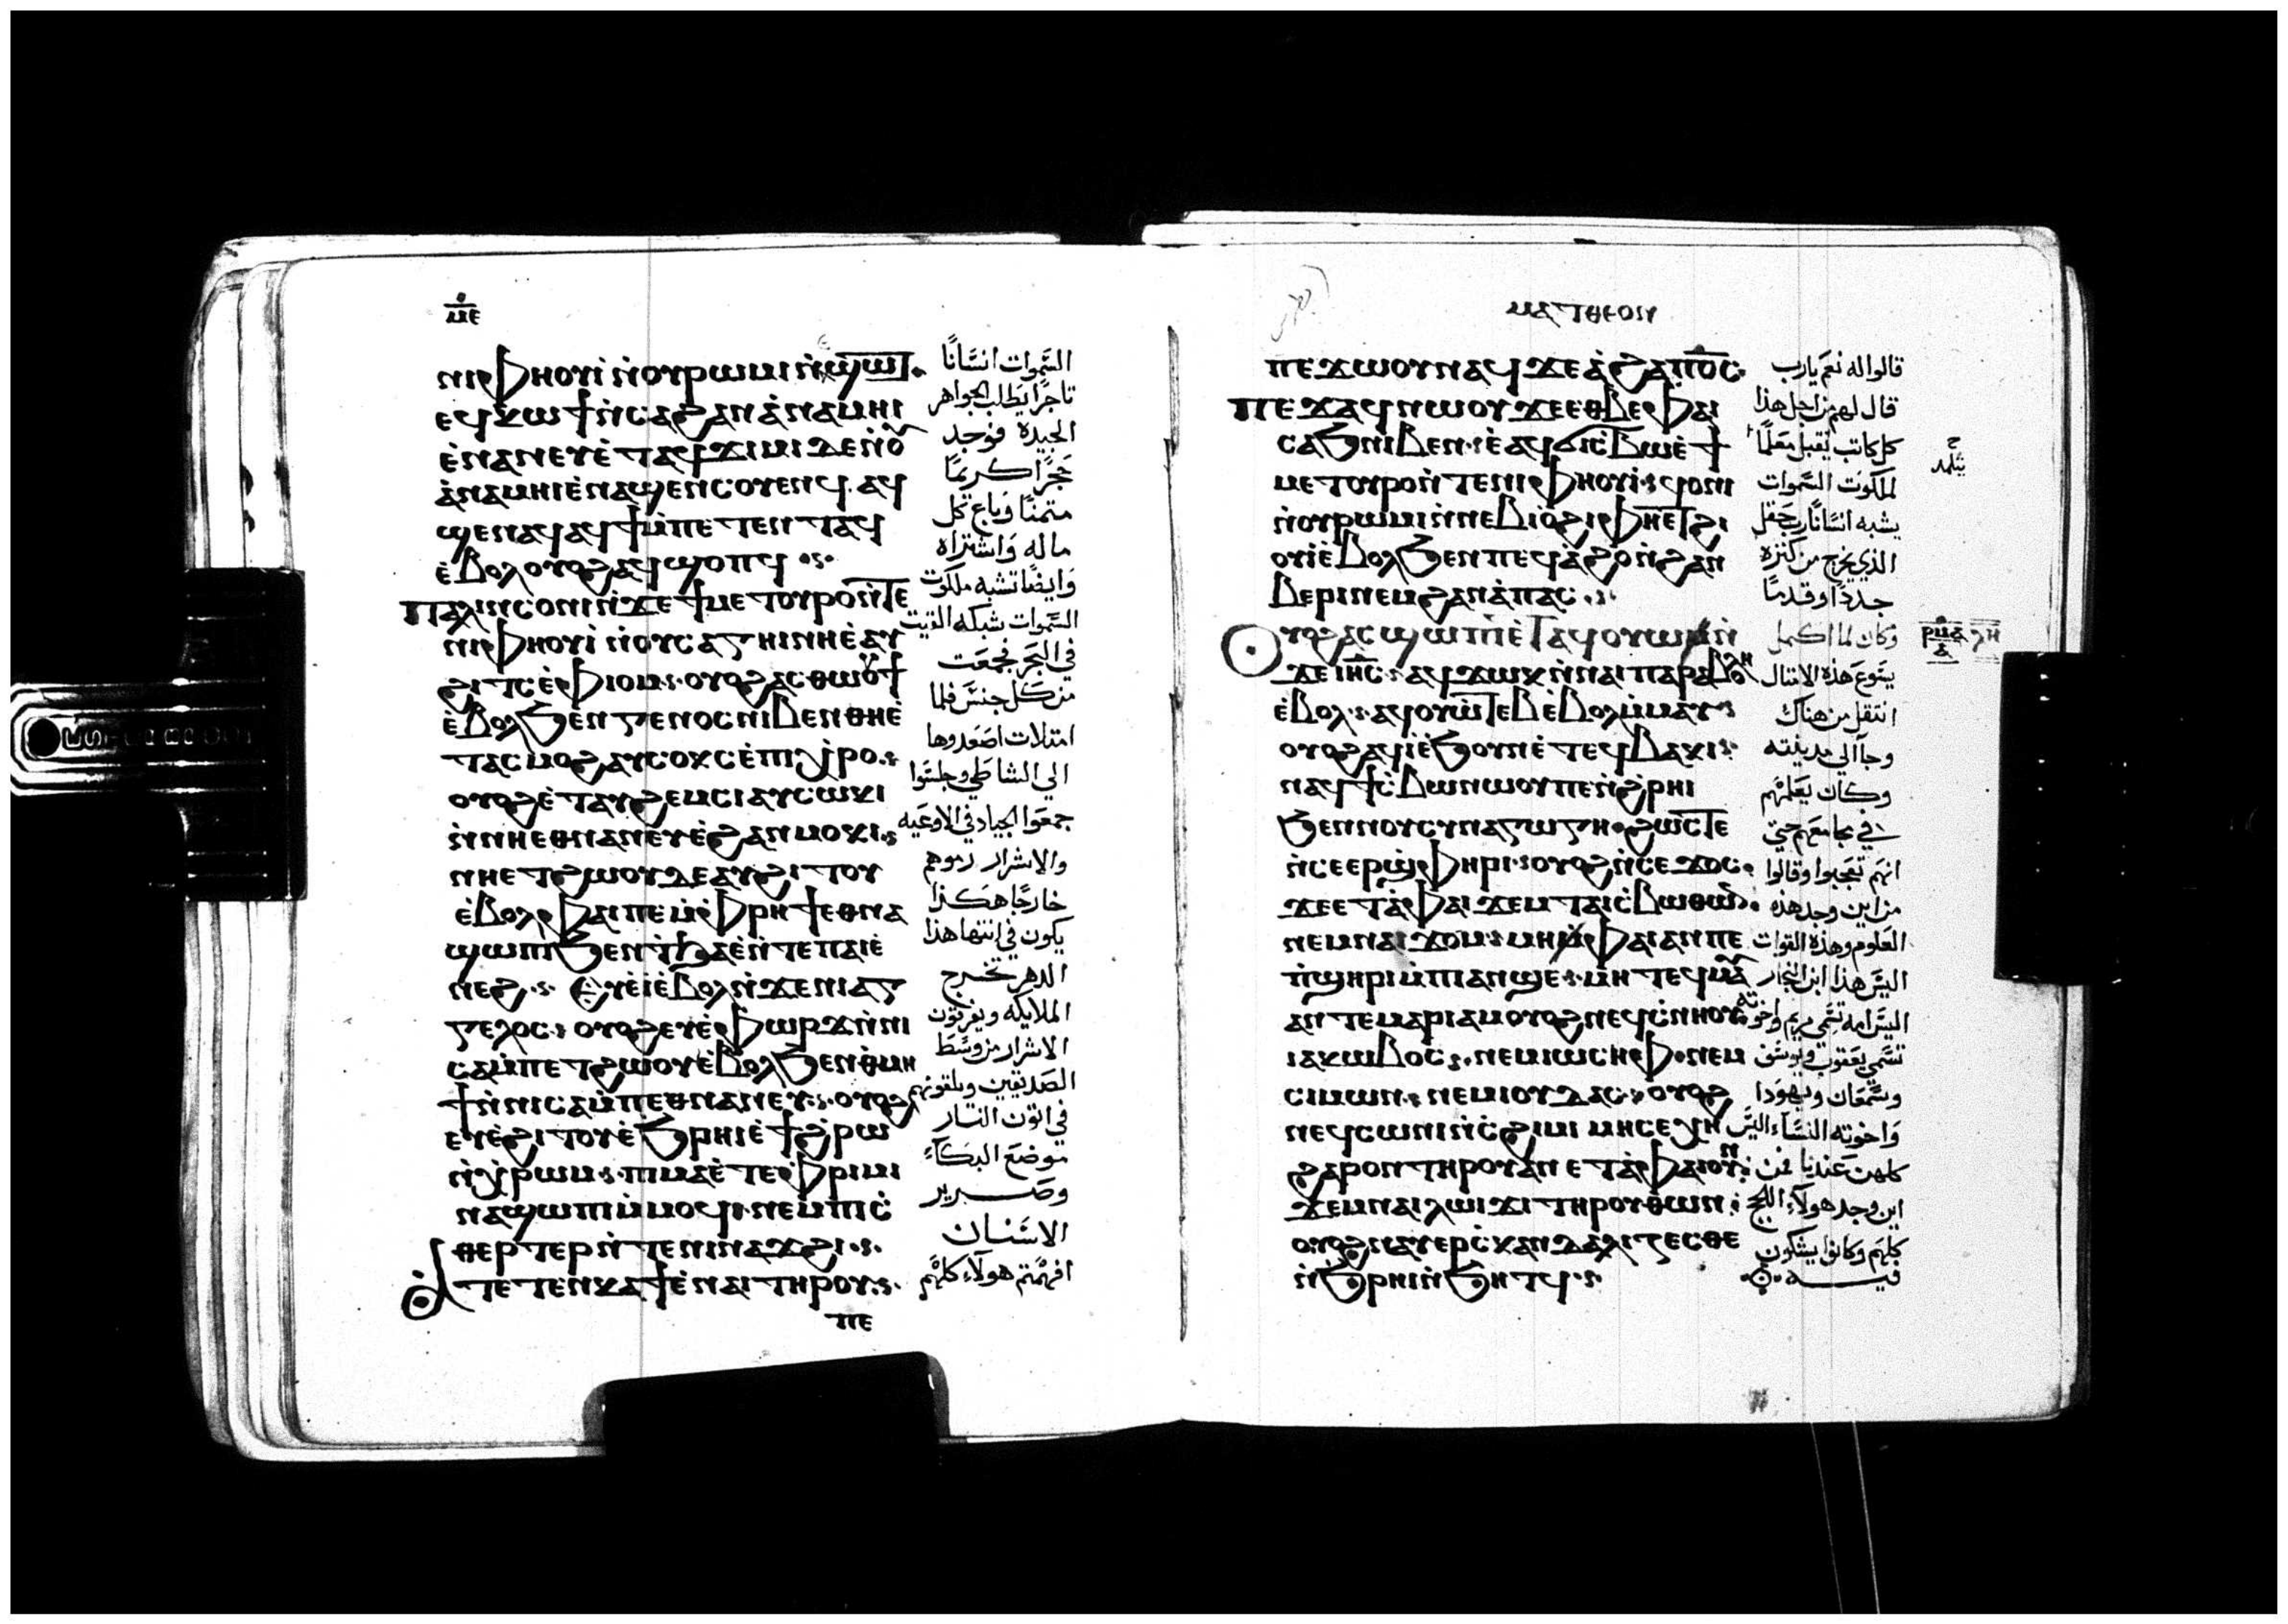 ⲙⲉ
ⲛⲓⲫⲏⲟⲩⲓ̀ ⲛ̀ⲟⲩⲣⲱⲙⲓ ⲛ̀ⲉ̀ϣⲱⲧ
ⲉϥⲕⲱϯ ⲛ̀ⲥⲁϩⲁⲛⲁ̀ⲛⲁⲙⲏⲓ
ⲉ̀ⲛⲁⲛⲉⲩ ⲉ̀ⲧⲁϥϫⲓⲙⲓ ⲇⲉ ⲛ̀ⲟⲩ
ⲁ̀ⲛⲁⲙⲏⲓ ⲉ̀ⲛⲁϣⲉⲛⲥⲟⲩⲉⲛϥ· ⲁϥ
ϣⲉⲛⲁϥ ⲁϥϯ ⲙ̀ⲡⲉⲧⲉⲛⲧⲁϥ
ⲉ̀ⲃⲟⲗ ⲟⲩⲟϩ ⲁϥϣⲟⲡϥ
ⲡⲁⲗⲓⲛ ⲥⲟⲛⲓ ⲛ̀ϫⲉ ϯⲙⲉⲧⲟⲩⲣⲟ ⲛ̀ⲧⲉ
ⲛⲓⲫⲏⲟⲩⲓ̀ ⲛ̀ⲟⲩⲥⲁⲅⲏⲛⲏ ⲉ̀ⲁⲩ
ϩⲓⲧⲥ ⲉ̀ⲫⲓⲟⲙ· ⲟⲩⲟϩ ⲁⲥⲑⲱⲟⲩϯ
ⲉ̀ⲃⲟⲗϧⲉⲛ ⲅⲉⲛⲟⲥ ⲛⲓⲃⲉⲛ ⲑⲏ ⲉ̀
ⲧⲁⲥⲙⲟϩ ⲁⲩⲥⲟⲕⲥ ⲉ̀ⲡⲓⲭⲣⲟ
ⲟⲩⲟϩ ⲉ̀ⲧⲁⲩϩⲉⲙⲥⲓ ⲁⲩⲥⲱⲕⲓ
ⲛ̀ⲛⲏⲉⲑⲛⲁⲛⲉⲩ ⲉ̀ϩⲁⲛⲙⲟⲕⲓ
ⲛⲏⲉⲧϩⲱⲟⲩ ⲇⲉ ⲁⲩϩⲓⲧⲟⲩ
ⲉ̀ⲃⲟⲗ ⲫⲁⲓ ⲡⲉ ⲙ̀ⲫⲣⲏϯ ⲉⲑⲛⲁ
ϣⲱⲡⲓ ϧⲉⲛ ϯϧⲁⲉ̀ ⲛ̀ⲧⲉ ⲡⲁⲓⲉ̀
ⲛⲉϩ ⲉⲩⲉ̀ⲓ̀ ⲉ̀ⲃⲟⲗ ⲛ̀ϫⲉ ⲛⲓⲁⲅ
ⲅⲉⲗⲟⲥ ⲟⲩⲟϩ ⲉⲩⲉ̀ⲫⲱⲣϫ ⲛ̀ⲛⲓ
ⲥⲁⲙ̀ⲡⲉⲧϩⲱⲟⲩ ⲉ̀ⲃⲟⲗϧⲉⲛ ⲑⲙⲏ
ϯ ⲛ̀ⲛⲓⲥⲁⲙ̀ⲡⲉⲑⲛⲁⲛⲉⲩ ⲟⲩⲟϩ
ⲉⲩⲉ̀ϩⲓⲧⲟⲩ ⲉ̀ϧⲣⲏⲓ ⲉ̀ϯϩⲣⲱ
ⲛ̀ⲭⲣⲱⲙ ⲡⲓⲙⲁ ⲉ̀ⲧⲉ ⲫⲣⲓⲙⲓ
ⲛⲁϣⲱⲡⲓ ⲙ̀ⲙⲟϥ ⲛⲉⲙ ⲡⲓⲥ̀
ⲑⲉⲣⲧⲉⲣ ⲛ̀ⲧⲉ ⲛⲓⲛⲁϫϩⲓ
ⲁ̀ⲧⲉⲧⲉⲛⲕⲁϯ ⲉ̀ⲛⲁⲓ ⲧⲏⲣⲟⲩ
ⲡⲉ
السَّموات انسَانًا
تاجرًا يَطلب الجواهر
الجيدة فوجد
حَجَرًا كريمًا
مثمنًا وبَاع كل
ماله وَاشتراه
وَايضًا تشبه ملكوت
السَّموات شبكه القيت
في البَحَر فجمَعَت
من كل جنسَ فلما
امتلات اصَعَدوها
الي الشاطي وجلسَوا
جمعَوا الجياد في الاوعَيه
والاشرار رموهم
خارجًا هَكذا
يكون في انتها هذا
الدهر تخرج
الملايكه ويفرزون
الاشرار من وسَط
الصَديقين ويلقونهم
في اتون النار
موضعَ البكآء
وصَرير
الاسَنان
افهمتم هولآء كلهم
ⲙⲁⲧⲑⲉⲟⲛ
ⲡⲉϫⲱⲟⲩ ⲛⲁϥ ϫⲉ ⲁ̀ϩⲁ ⲡⲟ̅ⲥ̅
ⲡⲉϫⲁϥ ⲛⲱⲟⲩ ϫⲉ ⲉⲑⲃⲉ ⲫⲁⲓ
ⲥⲁϧ ⲛⲓⲃⲉⲛ ⲉ̀ⲁϥϭⲓⲥ̀ⲃⲱ ⲉ̀ϯ
ⲙⲉⲧⲟⲩⲣⲟ ⲛ̀ⲧⲉ ⲛⲓⲫⲏⲟⲩⲓ̀ ϥⲟⲛⲓ
ⲛ̀ⲟⲩⲣⲱⲙⲓ ⲛ̀ⲛⲉⲃⲓⲟϩⲓ ⲫⲏⲉⲧϩⲓ
ⲟⲩⲓ̀ ⲉ̀ⲃⲟⲗϧⲉⲛ ⲡⲉϥⲁ̀ϩⲟ ⲛ̀ϩⲁⲛ
ⲃⲉⲣⲓ ⲛⲉⲙ ϩⲁⲛⲁ̀ⲡⲁⲥ
ⲟⲩⲟϩ ⲁⲥϣⲱⲡⲓ ⲉ̀ⲧⲁϥⲟⲩⲱ ⲛ̀
ϫⲉ ⲓⲏ̅ⲥ̅ ⲁϥϫⲱⲕ ⲛ̀ⲛⲁⲓⲡⲁⲣⲁⲃⲟⲗⲏ
ⲉ̀ⲃⲟⲗ ⲁϥⲟⲩⲱⲧⲉⲃ ⲉ̀ⲃⲟⲗ ⲙ̀ⲙⲁⲩ
ⲟⲩⲟϩ ⲁϥⲓ̀ ⲉ̀ϧⲟⲩⲛ ⲉ̀ⲧⲉϥⲃⲁⲕⲓ
ⲛⲁϥϯⲥ̀ⲃⲱ ⲛⲱⲟⲩ ⲡⲉ ⲛ̀ϩⲣⲏⲓ
ϧⲉⲛ ⲛⲟⲩⲥⲩⲛⲁⲅⲱⲅⲏ ϩⲱⲥⲧⲉ
ⲛ̀ⲥⲉⲉⲣϣ̀ⲫⲏⲣⲓ ⲟⲩⲟϩ ⲛ̀ⲥⲉϫⲟⲥ
ϫⲉ ⲉⲧⲁ̀ ⲫⲁⲓ ϫⲉⲙ ⲧⲁⲓⲥ̀ⲃⲱ ⲑⲱⲛ
ⲛⲉⲙ ⲛⲁⲓϫⲟⲙ ⲙⲏ ⲫⲁⲓ ⲁⲛ ⲡⲉ
ⲡ̀ϣⲏⲣⲓ ⲙ̀ⲡⲓⲁⲙϣⲉ ⲙⲏ ⲧⲉϥⲙⲁⲩ
ⲁⲛ ⲧⲉ ⲙⲁⲣⲓⲁⲙ ⲟⲩⲟϩ ⲛⲉϥⲥ̀ⲛⲏⲟⲩ
ⲓⲁⲕⲱⲃⲟⲥ ⲛⲉⲙ ⲓⲱⲥⲏⲫ ⲛⲉⲙ
ⲥⲓⲙⲱⲛ ⲛⲉⲙ ⲓⲟⲩⲇⲁⲥ ⲟⲩⲟϩ
ⲛⲉϥⲥⲱⲛⲓ ⲛ̀ⲥ̀ϩⲓⲙⲓ ⲙⲏ ⲥⲉⲭⲏ
ϩⲁⲣⲟⲛ ⲧⲏⲣⲟⲩ ⲁⲛ ⲉⲧⲁ̀ ⲫⲁⲓ ⲟⲩⲛ
ϫⲉⲙ ⲛⲁⲓⲗⲱⲓϫⲓ ⲧⲏⲣⲟⲩ ⲑⲱⲛ
ⲟⲩⲟϩ ⲛⲁⲩⲉⲣⲥ̀ⲕⲁⲛⲇⲁⲗⲓⲍⲉⲥⲑⲉ
ⲛ̀ϧⲣⲏⲓ ⲛ̀ϧⲏⲧϥ
قالوا له نعَم يارب
قال لهم من اجل هذا
كل كاتب يقبل معَلمًا
لملكوت السَّموات
يشبه انسَانًا رب حَقل
الذي يخرج من كنزه
جددًا وقدمًا
وكان لما اكمل
يسَوعَ هذه الامثال
انتقل من هناك
وجآ الي مدينته
وكان يعَلمهم
في مجامعَهم حتي
انهم تعَجبوا وقالوا
من اين وجد هذه
العَلوم وهذه القوات
اليسَ هذا ابن النجار
اليسَ امه تسَمي مريم واخوته
تسَمي يعَقوب ويوسَف
وسَّمعَان ويهوَدا
وَاخوته النسَآء اليسَ
كلهن عَندنا فمن
اين وجد هولآء
كلهَم وكانوا يشكون
فيه